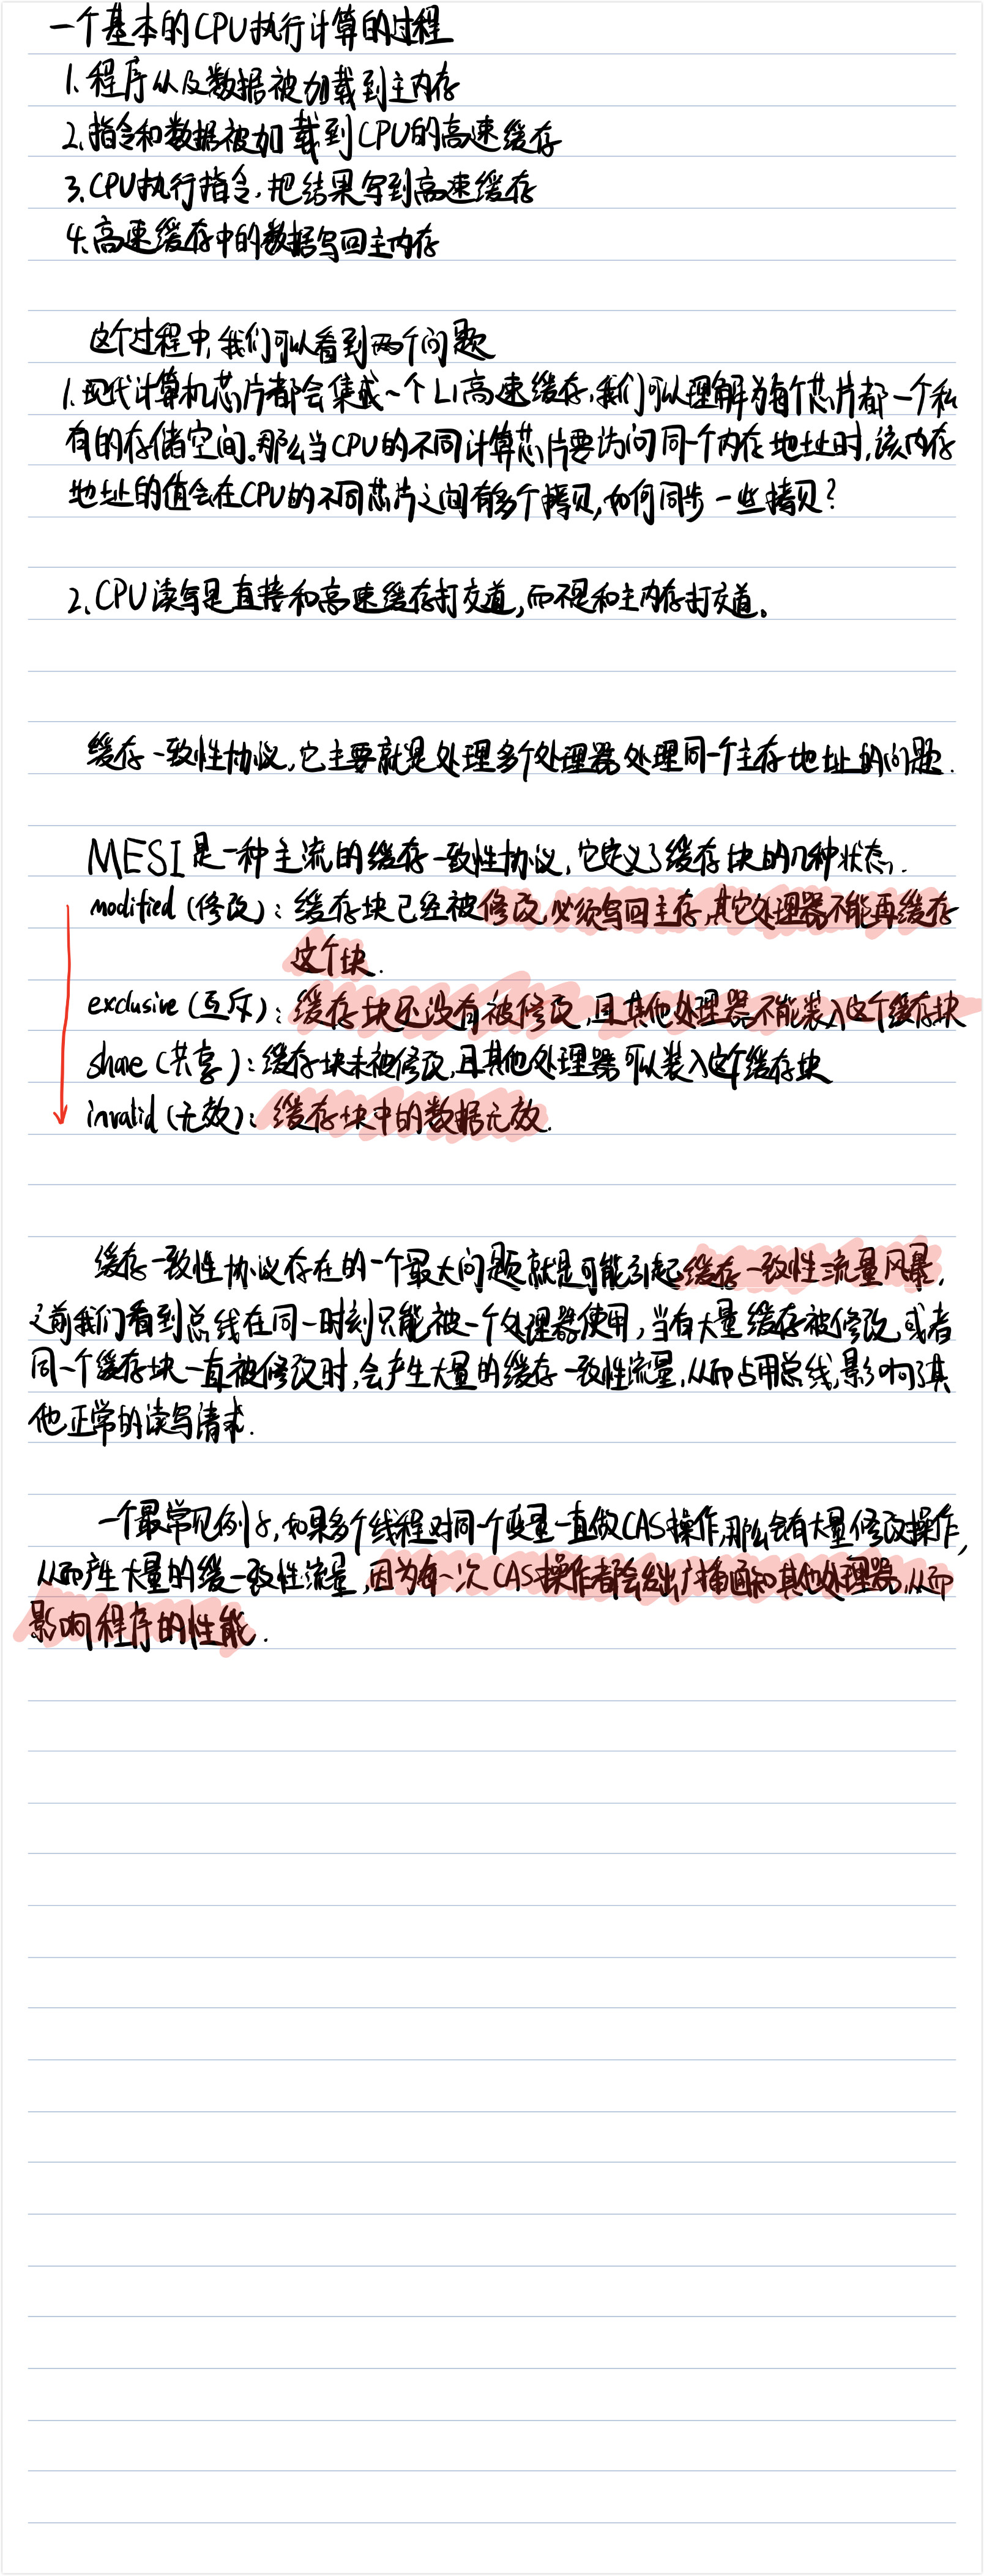 一个基本的CPU执行计算的过程
1.程序以及数据被加载到主内存
2.指令和数据被加载到CPU的高速缓存
3.CPU执行指令,把结果写到高速缓存
4.高速缓存中的数据写回主内存
这个过程中,我们可以看到两个问题
1.现代计算机芯片都会集成一个L1高速缓存,我们可以理解为每个芯片都一个私
有的存储空间。那么当CPU的不同计算芯片要访问同一个内存地址时,该内存
地址的值会在CPU的不同芯片之间有多个拷贝,如何同步一些拷贝?
2、CPU读写是直接和高速缓存打交道,而不是和主内存打交道。
缓存一致性协议,它主要就是处理多个处理器处理同一个主存地址的问题.
MESI是一种主流的缓存一致性协议,它定义了缓存块的几种状态,.
modified(修改):缓存块已经被修改,必须写回主存,其它处理器不能再缓存
这个块.
exclusive(互斥):缓存块还没有被修改,且其他处理器不能装入这个缓存块
share(共享):缓存块未被修改,且其他处理器可以装入这个缓存块
invalid(无效):缓存块中的数据无效.
缓存一致性协议存在的一个最大问题就是可能引起缓存一致性流量风暴,
之前我们看到总线在同一时刻只能被一个处理器使用,当有大量缓存被修改,或者
同一个缓存块一直被修改时,会产生大量的缓存一致性流量,从而占用总线,影响了其
他正常的读写请求.
一个最常见例子,如果多个线程对同一个变量一直做CAS操作,那么会有大量修改操作,
从而产生大量的缓一致性流量,因为每一次CAS操作都会发出广播通知其他处理器,从而
影响程序的性能.